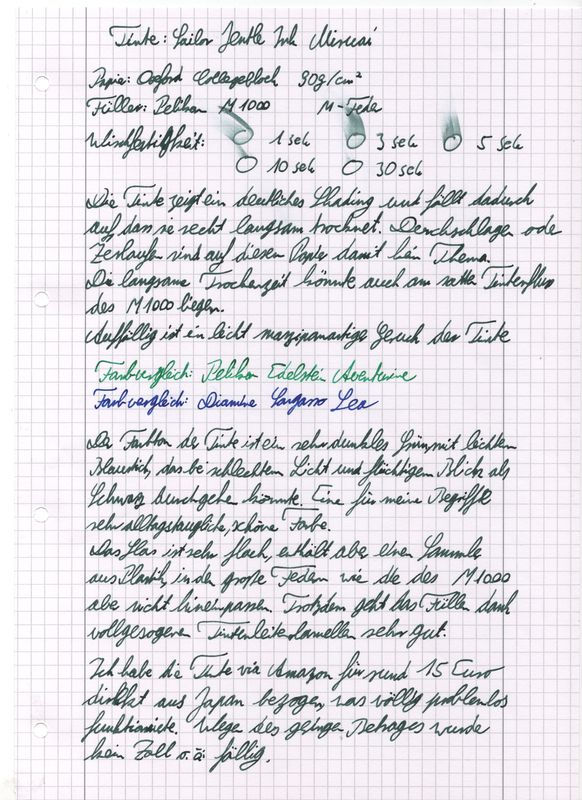 Tinte: Sailor Jentle Ink Miruai
Papier: Oxford Collegeblock 90g/cm²
Füller: Pelikan M1000 M-Feder
Wischfestigkeit: 1 sek 3 sek 5 sek
10 sek 30 sek
Die Tinte zeigt ein deutliches Shading und fällt dadurch
auf, dass sie recht langsam trocknet. Durchschlagen oder
Zerlaufen sind auf diesem Papier damit kein Thema.
Die langsame Trockenzeit könnte auch am satten Tintenfluss
des M1000 liegen.
Auffällig ist ein leicht marzipanartiger Geruch der Tinte
Farbvergleich: Pelikan Edelstein Aventurine
Farbvergleich: Diamine Sargasso Sea
Der Farbton der Tinte ist ein sehr dunkles Grün mit leichtem
Blaustich, das bei schlechtem Licht und flüchtigem Blick als
Schwarz durchgehen könnte. Eine für meine Begriffe
sehr alltagstaugliche, schöne Farbe.
Das Glas ist sehr flach, enthält aber einen Sammler
aus Plastik, in den große Federn wie die des M1000
aber nicht hineinpassen. Trotzdem geht das Füllen dank
vollgesogener Tintenleiterlamellen sehr gut.
Ich habe die Tinte via Amazon für rund 15 Euro
direkt aus Japan bezogen, was völlig problemlos
funktionierte. Wegen des geringen Betrages wurde
kein Zoll o.ä. fällig.